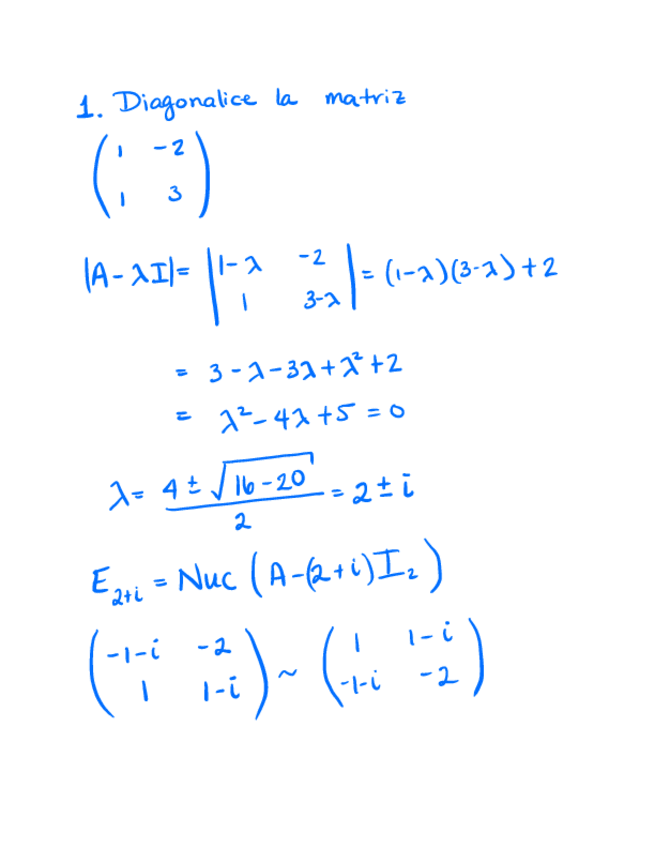 1. Diagonalice la matriz
( 1 -2
1 3 )
|A-λI|= | 1-λ -2
1 3-λ | = (1-λ)(3-λ)+2
= 3-λ-3λ+λ²+2
= λ²-4λ+5 = 0
λ= (4±√(16-20))/2 = 2±i
E₂₊ᵢ = Nuc (A-(2+i)I₂)
( -1-i -2
1 1-i ) ~ ( 1 1-i
-1-i -2 )